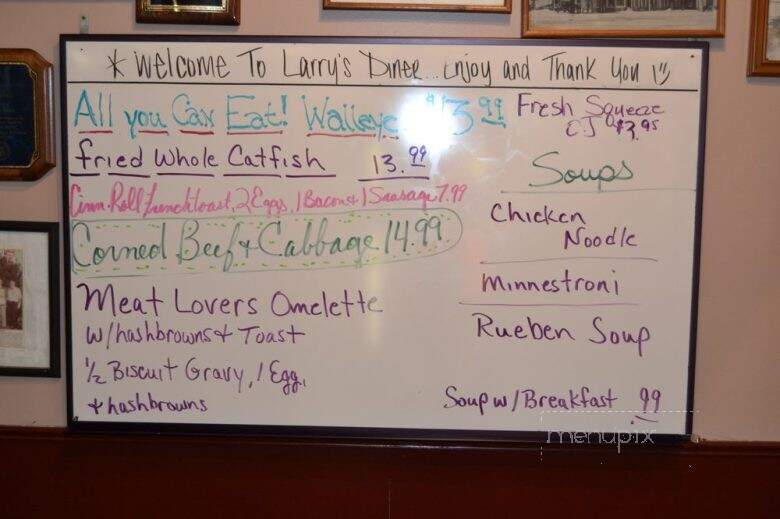 * Welcome To Larry's Diner... Enjoy and Thank You
All you Can Eat! Walleye $13 99
fried Whole Catfish 13.99
Cinn. Roll frenchtoast, 2 Eggs, 1 Bacon + 1 Sausage 7.99
Corned Beef + Cabbage 14.99
Meat Lovers Omelette
w/hashbrowns + Toast
1/2 Biscuit Gravy, 1 Egg,
+ hashbrowns
Fresh Squeeze
O.J $3.95
Soups
Chicken
Noodle
Minnestroni
Rueben Soup
Soup w/Breakfast .99
menupix